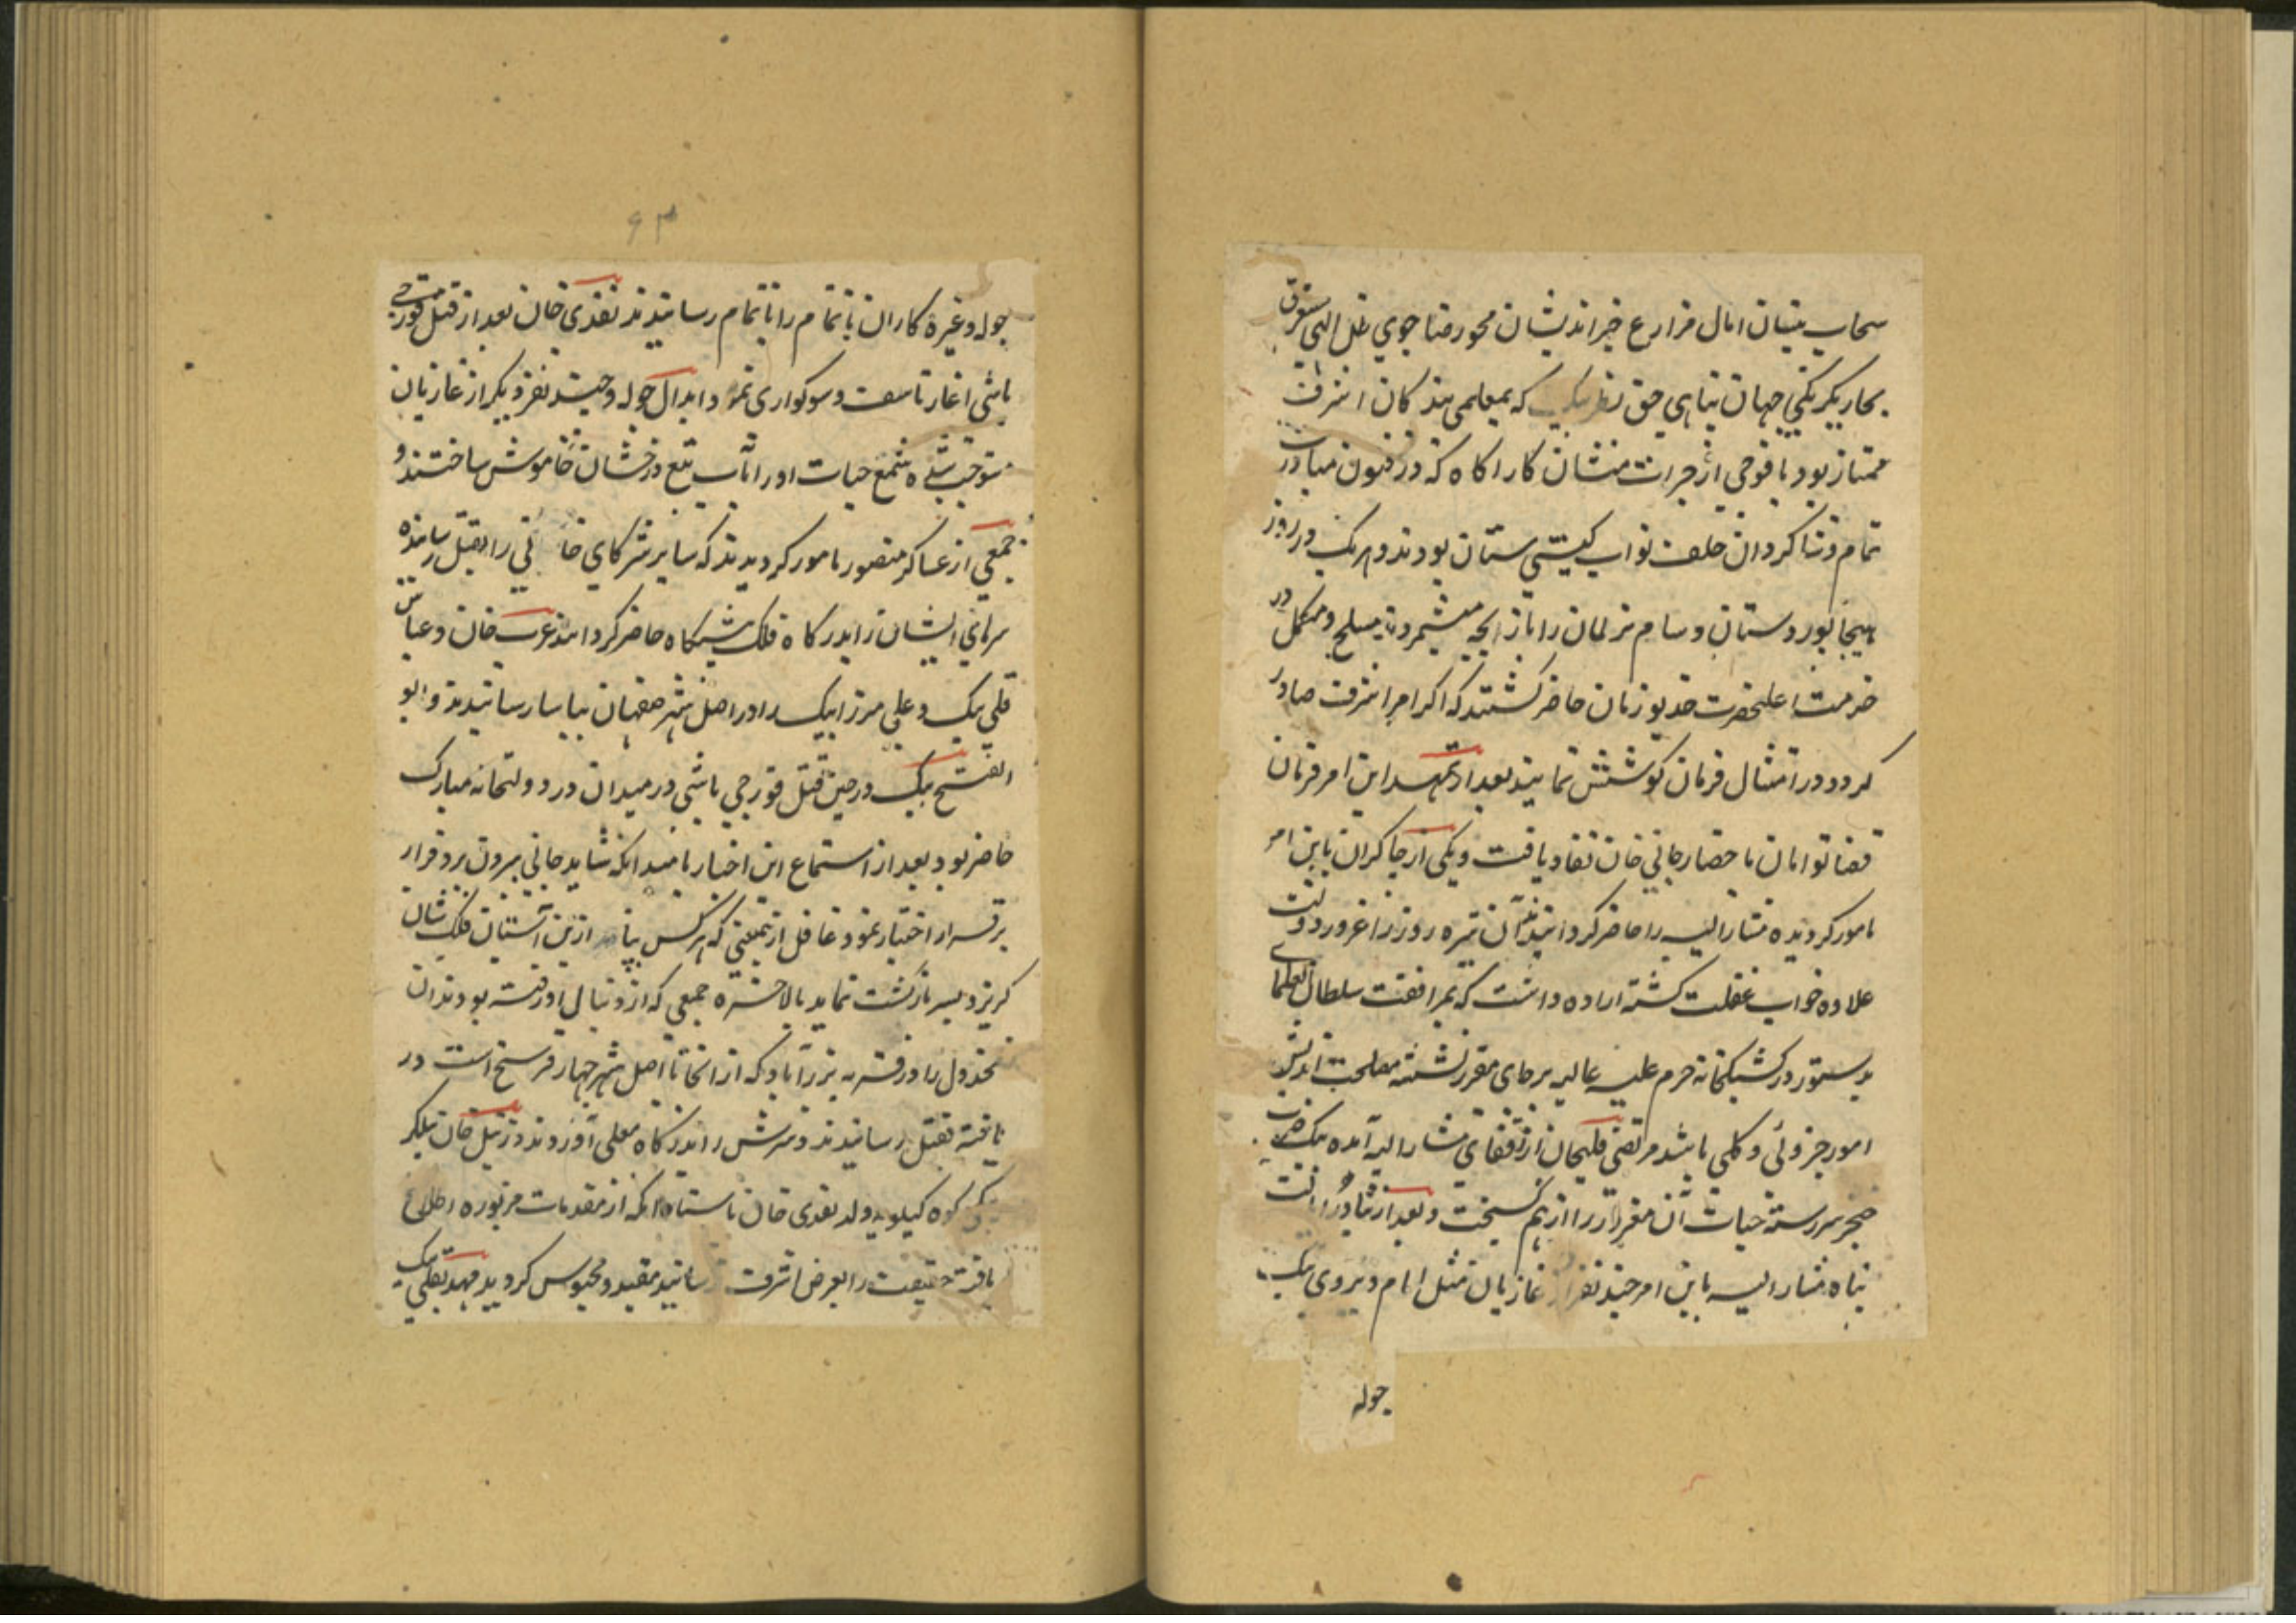 سحاب نیسان امال مزارع خیراندیشان محو رضاجوی ظل الهی مستغرق
بحار یکرنکی جهان پناهی حق نظر بیک که بمعلمی بندکان اشرف
ممتاز بود با فوجی از جرات منشان کاراکاه که در فنون مبادرت
تمام و شاکردان خلف نواب کیتی ستان بودند و هر یک در روز
هیجا پور دستان و سام نریمان را بازیچه میشمردند مسلح و مکمل در
خدمت اعلیحضرت خدیو زمان حاضر کشتند که اکر امر اشرف صادر
کردد در امتثال فرمان کوشش نمایند بعد از تمهید این امر فرمان
قضا توامان باحضار جانی خان نفاد یافت و یکی از چاکران باین امر
مامور کردیده مشارالیه را حاضر کردانیدند آن تیره روز را غرور دولت
علاوه خواب غفلت کشته اراده داشت که بمرافقت سلطان العلمای
بدستور در کشیکخانه حرم علیه عالیه بر جای مقرر نشسته مصلحت اندیش
امور جزوئی و کلی باشد مرتضی قلیخان از قفای مشارالیه آمده بیک ضرب
خنجر سررشته حیات آن مغرور را از هم کسیخت و بعد از
پناه مشارالیه باین امر چند نفر از غازیان مثل امام ویردی بیک
جوله
۶۳
جوله و غیره کار آن ناتمام را باتمام رسانیدند نقدی خان بعد از قتل قورچی
باشی اغاز تاسف و سوکواری نمود ابدال جوله و چند نفر دیکر از غازیان
متوجه شده شمع حیات او را بآب تیغ درخشان خاموش ساختند و
جمعی از عساکر منصور مامور کردیدند که سایر شرکای جانی را بقتل رسانیده
سرهای ایشان را بدرکاه فلک پیشکاه حاضر کردانند عرب خان و عباس
قلی بیک و علی میرزا بیک را در اصل شهر صفهان بیاسا رسانیدند و ابو
الفتح بیک در حین قتل قورچی باشی در میدان در دولتخانه مبارک
حاضر بود بعد از استماع این اخبار بامید انکه شاید جانی بیرون برد فرار
بر قرار اختیار نمود غافل از معنی که هر کس از این آستان فلک شان
کریزد بسر بازکشت نماید بالاخره جمعی که از دنبال او رفته بودند ان
مخذول را در قریه بزرآباد که از انجا تا اصل شهر چهار فرسخ است در
یافته بقتل رسانیدند و سرش را بدرکاه معلی آوردند و زینل خان بیکلر
بیکی کوه کیلویه ولد نقدی خان از مقدمات مزبوره اطلاع
یافته حقیقت را بعرض اشرف رسانید مقید و محبوس کردید مهدیقلی بیک